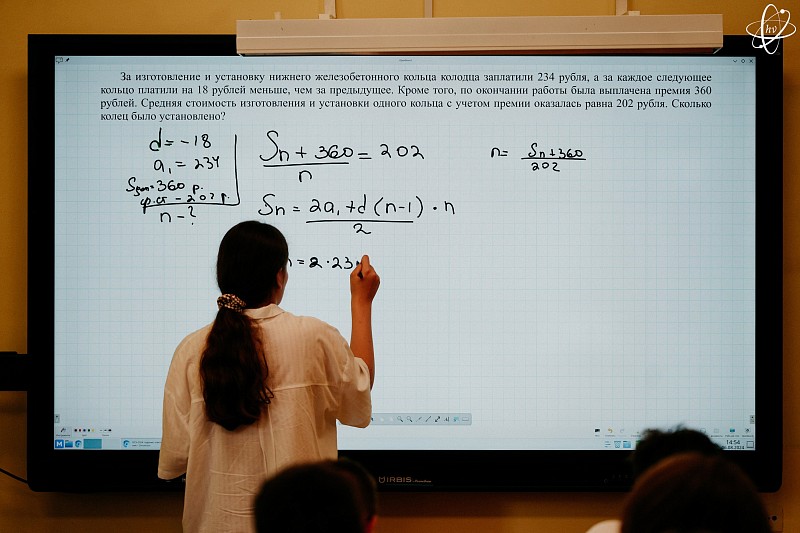 За изготовление и установку нижнего железобетонного кольца колодца заплатили 234 рубля, а за каждое следующее
кольцо платили на 18 рублей меньше, чем за предыдущее. Кроме того, по окончании работы была выплачена премия 360
рублей. Средняя стоимость изготовления и установки одного кольца с учетом премии оказалась равна 202 рубля. Сколько
колец было установлено?
d = -18
a₁ = 234
= 360 р.
ср.ст - 202 р.
n - ?
Sn + 360 / n = 202
Sn = 2a₁ + d(n-1) / 2 · n
= 2 · 23
n = Sn + 360 / 202
hν
14:54
IRBIS